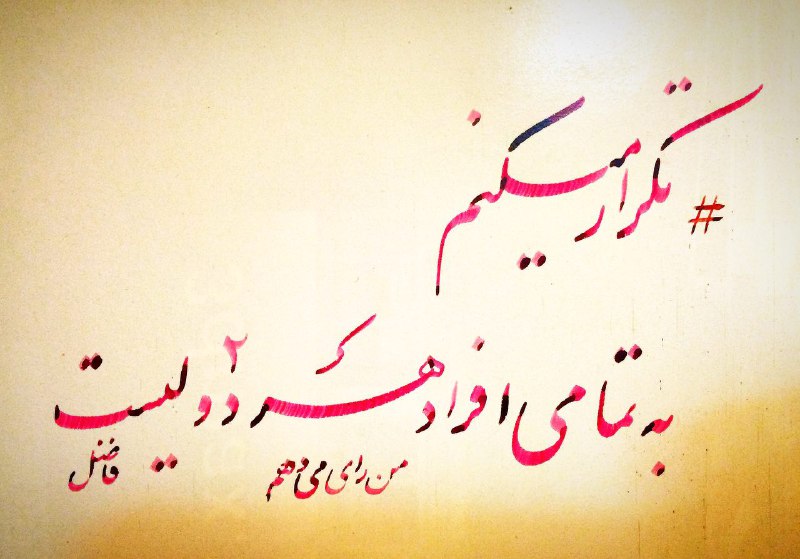 #تکرار میکنم
به تمامی افراد هر ۲ دو لیست
من رای می دهم
فاضل